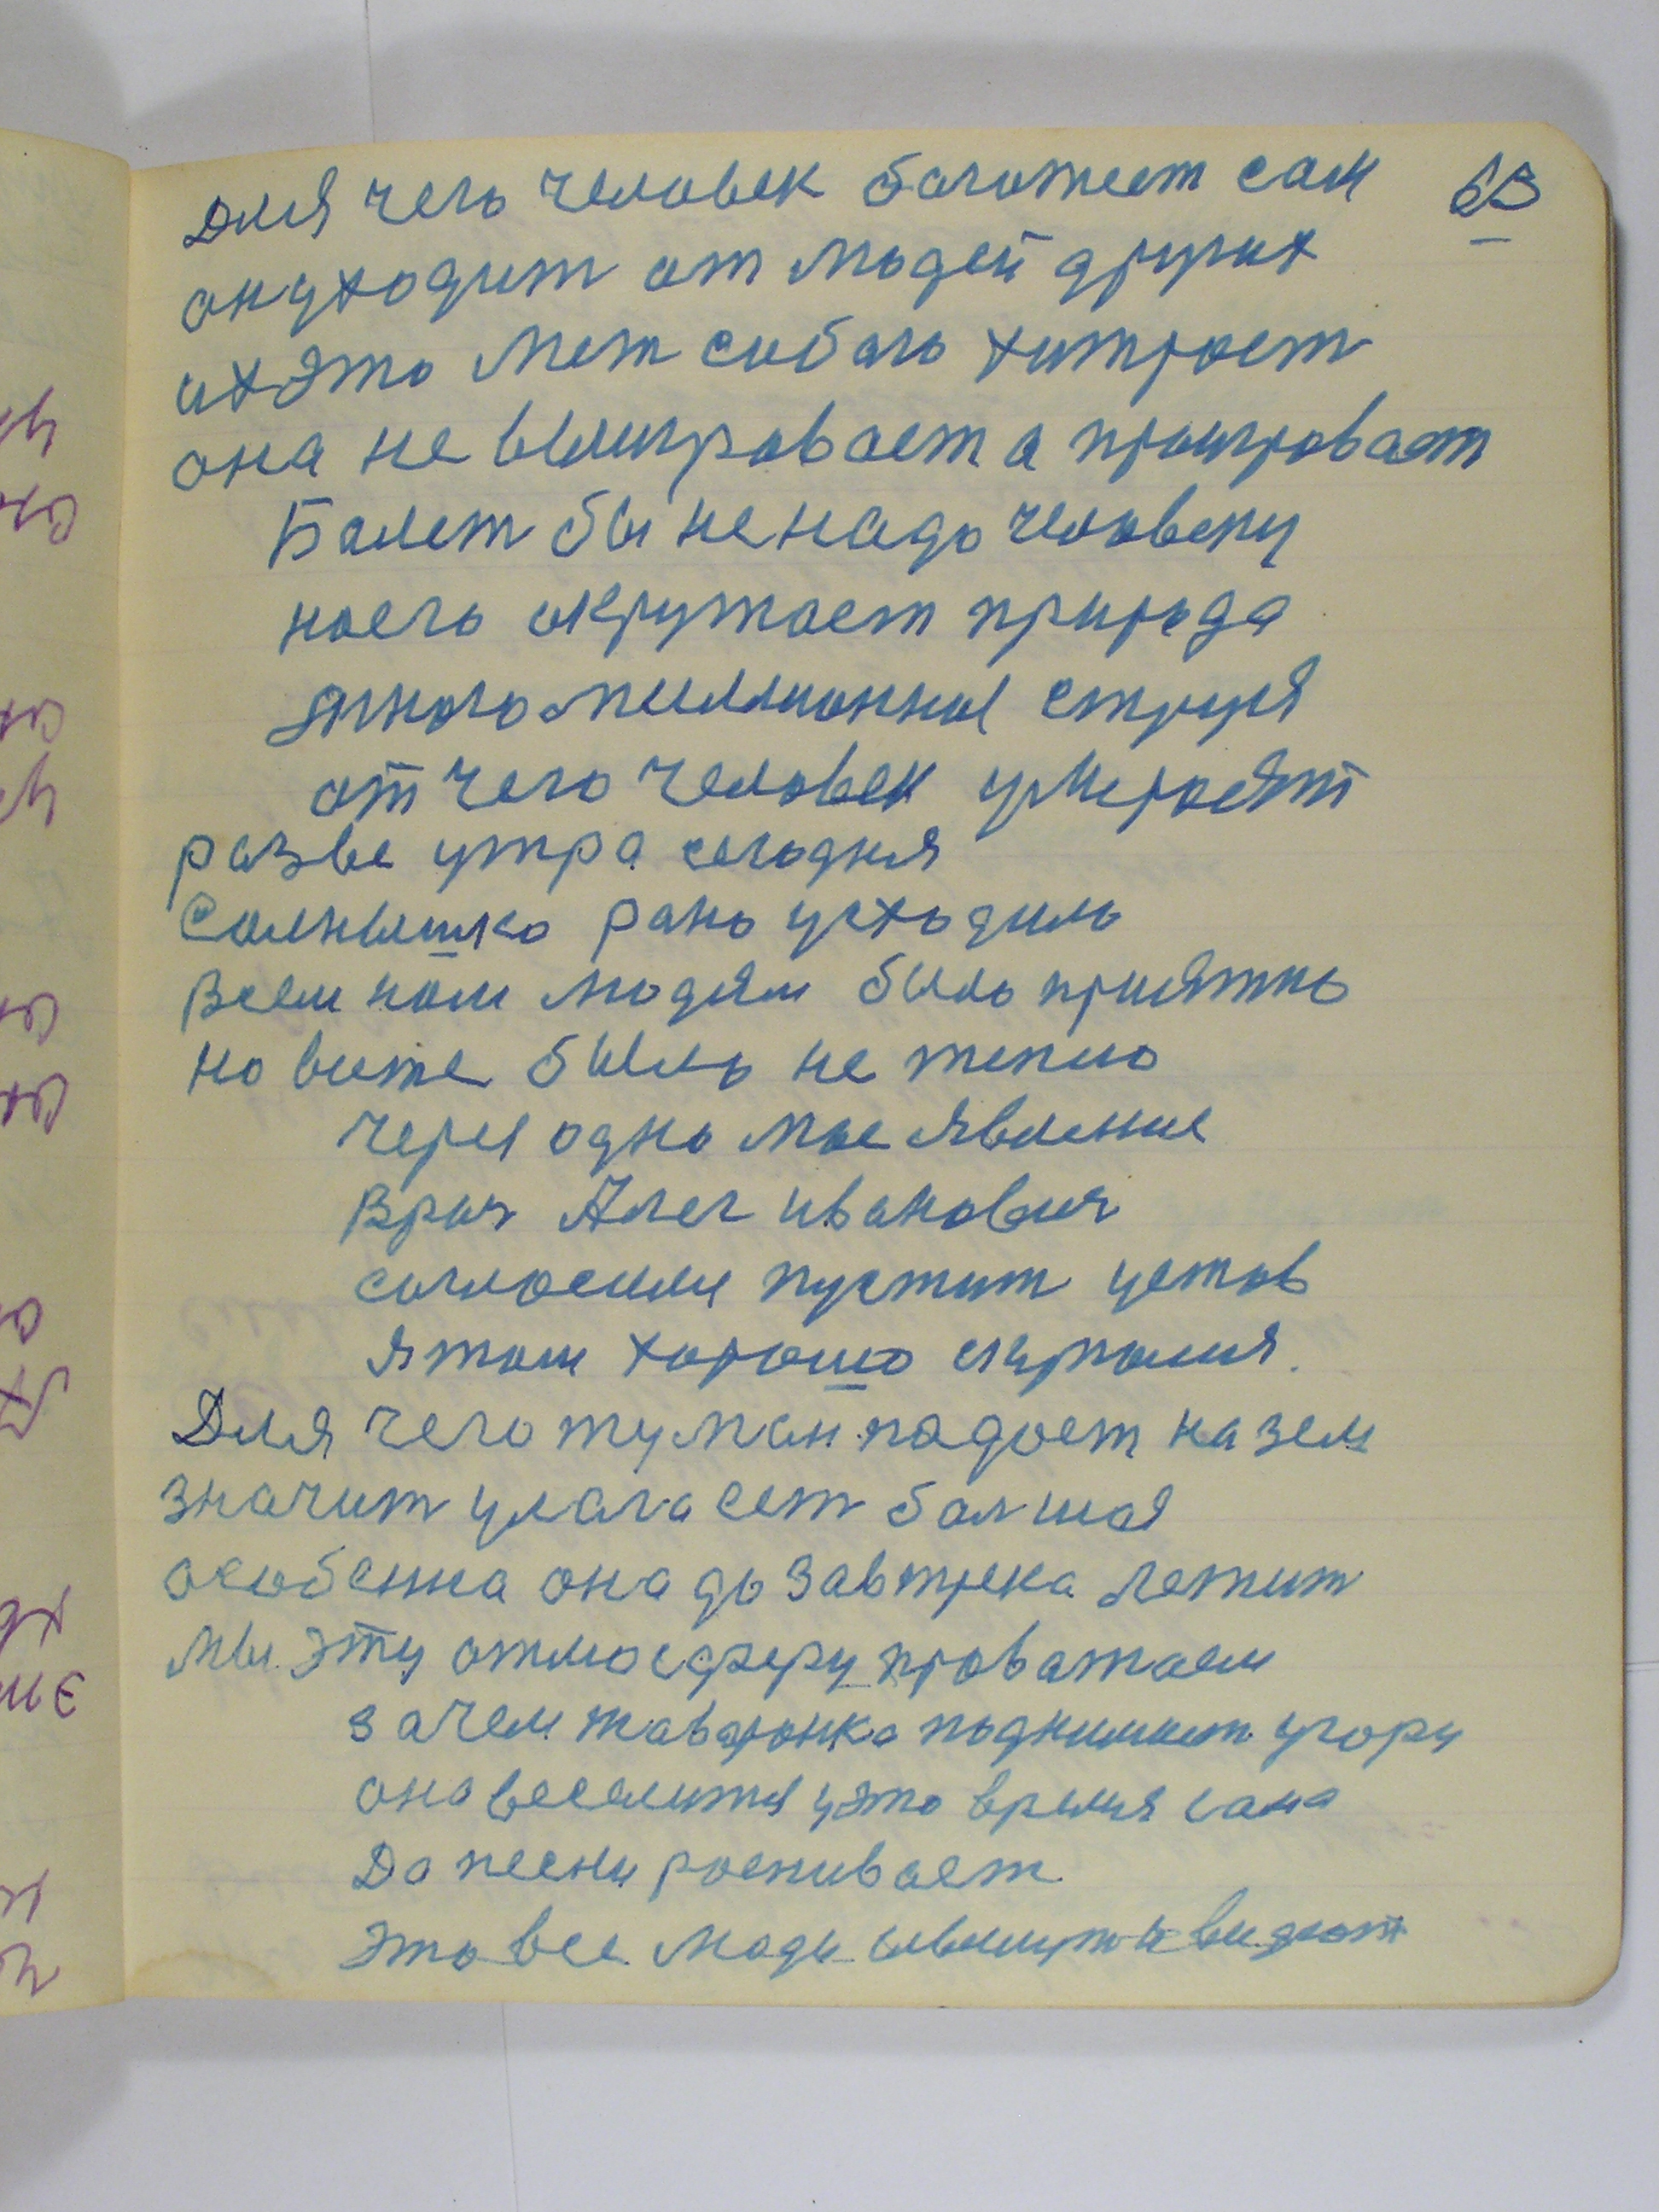 63
Для чего человек богатеет сам
он уходит от людей других
их это мет собаго хитраст
она не выигровает а проигровает
Балет бы не надо человеку
ноего окружает природа
многомиллионная струя
от чего человек умероят
разве утра сегодня
Солнышко рано усходило
Всем нам людям было приятно
но выже было не тепло
через одно мое явление
Врач Алег ивановия
согласили пустит устав
я там хорошо скупался.
Для чего туман падает на зем
значит улага ест балшая
особенна она до завтрека лежит
мы эту отмосферу праважаем
зачем жаваронка поднимает угору
она веселится уэто время сама
Да песни роспивает
это все люди видют